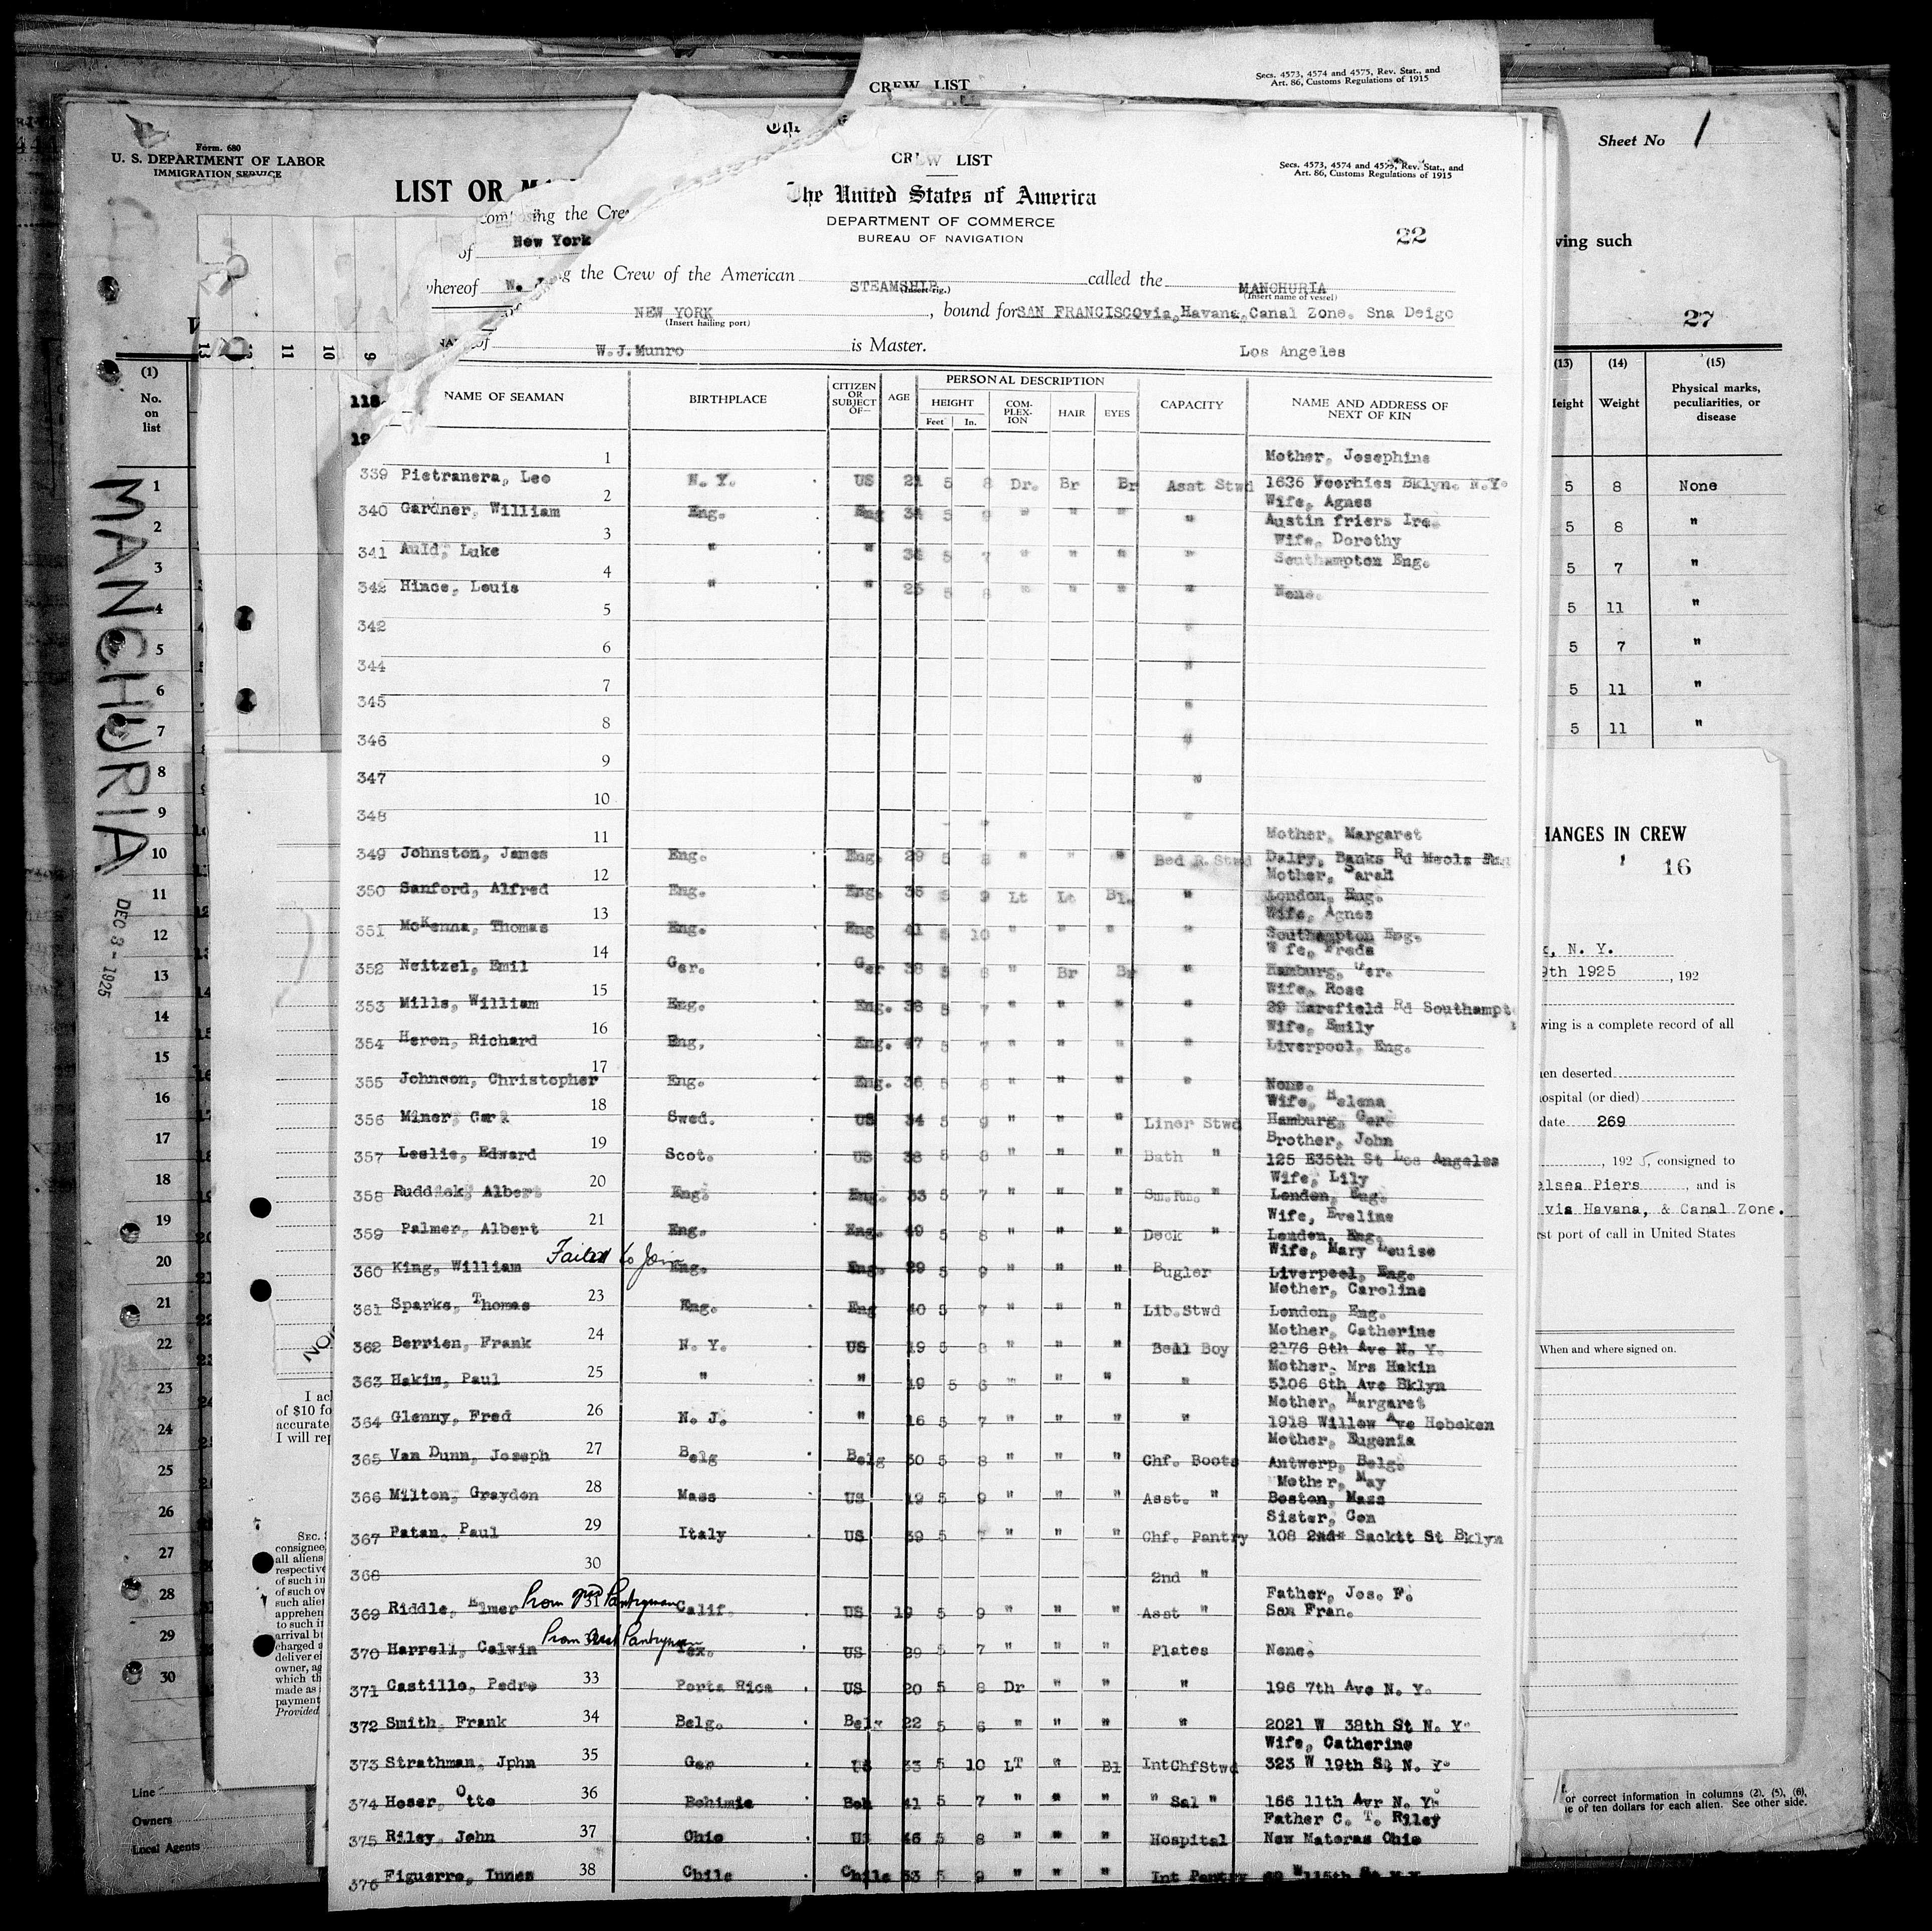 CREW LIST
Secs. 4573, 4574 and 4575, Rev. Stat., and
Art. 86, Customs Regulations of 1915
Sheet No 1
Form. 680
U. S. DEPARTMENT OF LABOR
IMMIGRATION SERVICE
LIST OR
composing the Cre
of New York
whereof W.
CREW LIST
Secs. 4573, 4574 and 4575, Rev. Stat., and
Art. 86, Customs Regulations of 1915
The United States of America
DEPARTMENT OF COMMERCE
BUREAU OF NAVIGATION
22
ving such
27
g the Crew of the American STEAMSHIP called the MANCHURIA
(Insert rig.) (Insert name of vessel)
of NEW YORK, bound for SAN FRANCISCO via, Havana, Canal Zone. Sna Deigo
(Insert hailing port)
of W.J.Munro is Master. Los Angeles
13 11 10 9
118
NAME OF SEAMAN BIRTHPLACE CITIZEN OR SUBJECT OF— AGE PERSONAL DESCRIPTION CAPACITY NAME AND ADDRESS OF NEXT OF KIN
HEIGHT COM-PLEX-ION HAIR EYES
Feet In.
1 Mother, Josephine
339 Pietranera, Leo N. Y. US 21 5 8 Dr. Br Br Asst Stwd 1636 Voorhies Bklyn. N.Y.
2 Wife, Agnes
340 Gardner, William Eng. Eng 34 5 9 " " " " Austin friers Ire.
3 Wife, Dorothy
341 Auld, Luke " " 36 5 7 " " " " Southampton Eng.
4
342 Hince, Louis " " 25 5 8 " " " " None.
5
342 "
6
344 "
7
345 "
8
346 "
9
347 "
10
348 "
11 Mother, Margaret
349 Johnston, James Eng. Eng. 29 5 8 " " " Bed R. Stwd Dalry, Banks Rd Meols
12 Mother, Sarah
350 Sanford, Alfred Eng. Eng. 35 5 9 Lt Lt Bl. " London, Eng.
13 Wife, Agnes
351 McKenna, Thomas Eng. Eng 41 5 10 " " " " Southampton Eng.
14 Wife, Freda
352 Neitzel, Emil Ger. Ger 38 5 8 " Br Br " Hamburg, Ger.
15 Wife, Rose
353 Mills, William Eng. Eng. 38 5 7 " " " " 29 Marsfield Rd Southampt
16 Wife, Emily
354 Heron, Richard Eng, Eng. 47 5 7 " " " " Liverpool, Eng.
17
355 Johnson, Christopher Eng. Eng. 36 5 8 " " " " None.
18 Wife, Helena
356 Miner, Carl Swed. US 34 5 9 " " " Liner Stwd Hamburg, Ger.
19 Brother, John
357 Leslie, Edward Scot. US 38 5 8 " " " Bath " 125 E35th St Los Angeles
20 Wife, Lily
358 Ruddick, Albert Eng. Eng. 33 5 7 " " " Sm.Rm. " London, Eng.
21 Wife, Eveline
359 Palmer, Albert Eng. Eng. 49 5 8 " " " Deck " London, Eng.
Failed to Join Wife, Mary Louise
360 King, William Eng. Eng. 29 5 9 " " " Bugler Liverpool, Eng.
23 Mother, Caroline
361 Sparks, Thomas Eng. Eng 40 5 7 " " " Lib.Stwd London, Eng.
24 Mother, Catherine
362 Berrien, Frank N. Y. US 19 5 8 " " " Bell Boy 2176 8th Ave N. Y.
25 Mother, Mrs Hakin
363 Hakim, Paul " " 19 5 6 " " " " 5106 6th Ave Bklyn
26 Mother, Margaret
364 Glenny, Fred N. J. " 16 5 7 " " " " 1918 Willow Ave Hoboken
27 Mother, Eugenia
365 Van Dunn, Joseph Belg Belg 30 5 8 " " " Chf. Boots Antwerp, Belg.
28 Mother, May
366 Milton, Graydon Mass US 19 5 9 " " " Asst. " Boston, Mass
29 Sister, Con
367 Patan, Paul Italy US 39 5 7 " " " Chf. Pantry 108 2nd" Sackit St Bklyn
30
368 2nd "
from 2nd Pantryman Father, Jos. F.
369 Riddle, Elmer Calif. US 19 5 9 " " " Asst " San Fran.
from Asst Pantryman
370 Harrell, Calvin Tex. US 29 5 7 " " " Plates None.
33
371 Castillo, Pedro Porto Rica US 20 5 8 Dr " " " 196 7th Ave N. Y.
34
372 Smith, Frank Belg. Belg 22 5 6 " " " " 2021 W 38th St N. Y.
35 Wife, Catherine
373 Strathman, Jphn Ger US 33 5 10 LT " Bl IntChfStwd 323 W 19th St N. Y.
36
374 Hoser, Otto Bohimie Boh 41 5 7 " " " " Sal " 166 11th Avr N. Y.
37 Father C. T. Riley
375 Riley, John Ohio US 46 5 8 " " " Hospital New Matoras Ohio
38
376 Figuerro, Innes Chile Chile 33 5 9 " " " Int Pantry
MANCHURIA
DEC 8 - 1925
(1)
No.
on
list
1
2
3
4
5
6
7
8
9
10
11
12
13
14
15
16
17
18
19
20
21
22
23
24
25
26
27
28
29
30
Line
Owners
Local Agents
I ac
of $10 fo
accurate
I will rep
SEC.
consignee
all aliens
respective
of such in
of such ov
such alie
apprehen
to such i
arrival b
charged a
deliver e
owner, ag
which th
made as
payment
Provided
(13) (14) (15)
Height Weight Physical marks,
peculiarities, or
disease
5 8 None
5 8 "
5 7 "
5 11 "
5 7 "
5 11 "
5 11 "
HANGES IN CREW
16
k, N. Y.
9th 1925, 192
wing is a complete record of all
en deserted
ospital (or died)
date 269
, 1925, consigned to
elsea Piers, and is
via Havana, & Canal Zone.
rst port of call in United States
When and where signed on.
or correct information in columns (2), (5), (6),
e of ten dollars for each alien. See other side.